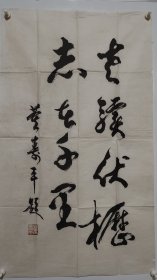 老骥伏枥
志在千里
董寿平题